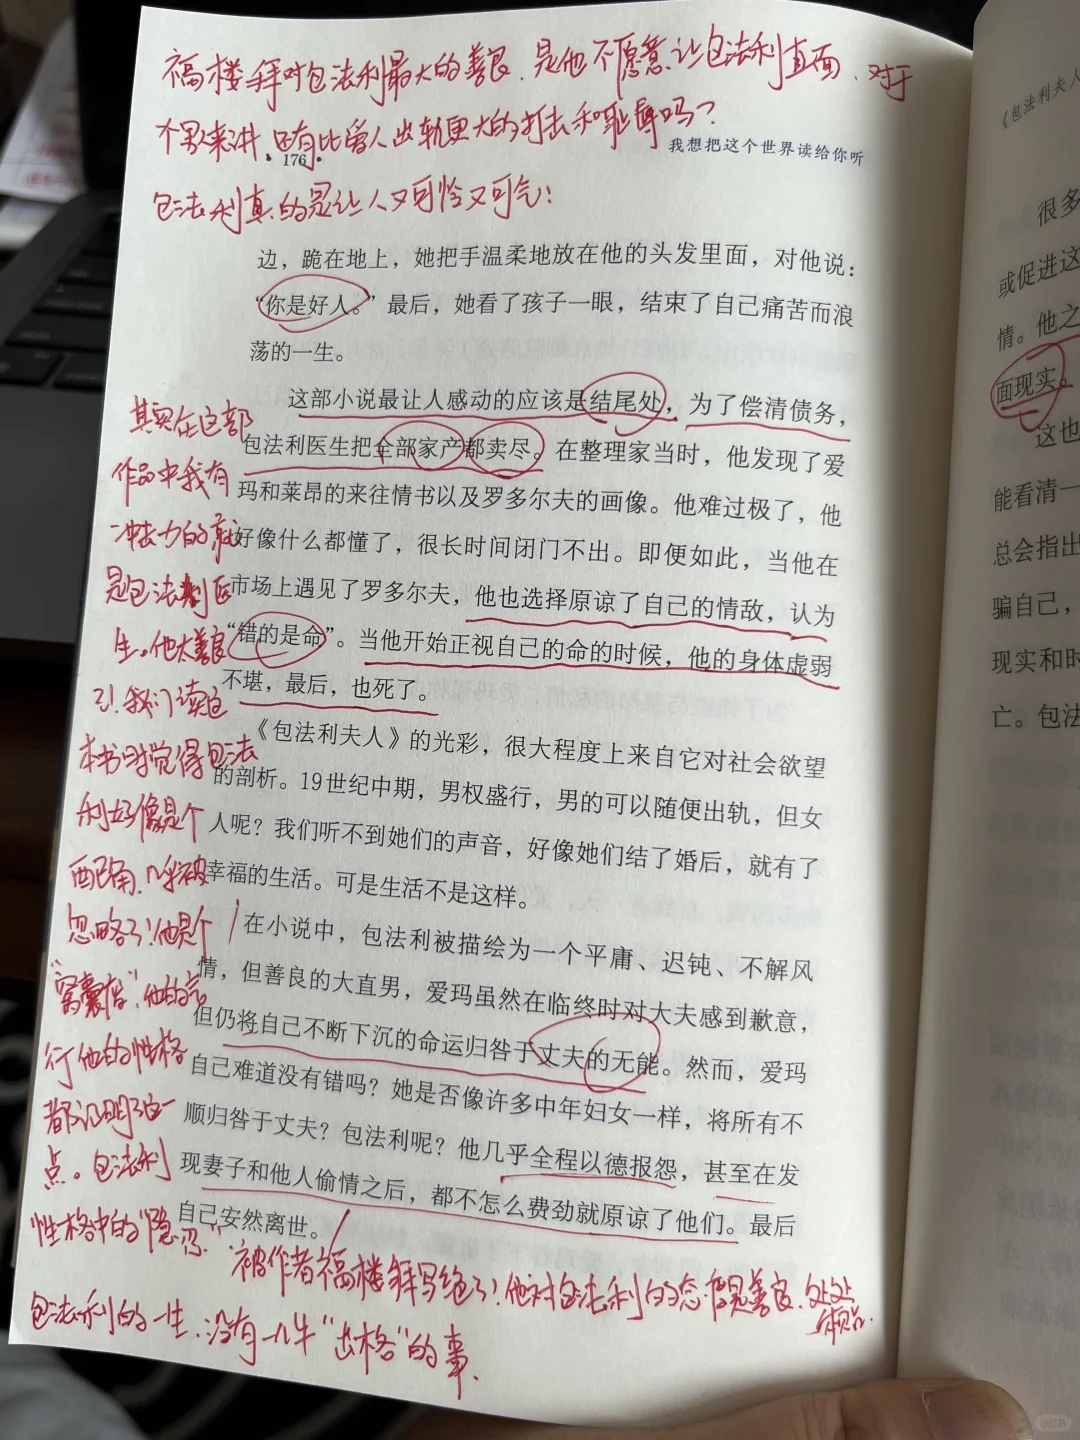 福楼拜对包法利最大的善良，是他不愿意让包法利直面，对于
个男人来讲，还有比爱人出轨更大的打击和耻辱吗？
• 176 •
我想把这个世界读给你听
包法利真的是让人又可怜又可气！
边，跪在地上，她把手温柔地放在他的头发里面，对他说：
“你是好人。”最后，她看了孩子一眼，结束了自己痛苦而浪
荡的一生。
这部小说最让人感动的应该是结尾处，为了偿清债务，
包法利医生把全部家产都卖尽。在整理家当时，他发现了爱
玛和莱昂的来往情书以及罗多尔夫的画像。他难过极了，他
好像什么都懂了，很长时间闭门不出。即便如此，当他在
市场上遇见了罗多尔夫，他也选择原谅了自己的情敌，认为
“错的是命”。当他开始正视自己的命的时候，他的身体虚弱
不堪，最后，也死了。
《包法利夫人》的光彩，很大程度上来自它对社会欲望
的剖析。19世纪中期，男权盛行，男的可以随便出轨，但女
人呢？我们听不到她们的声音，好像她们结了婚后，就有了
幸福的生活。可是生活不是这样。
在小说中，包法利被描绘为一个平庸、迟钝、不解风
情，但善良的大直男，爱玛虽然在临终时对大夫感到歉意，
但仍将自己不断下沉的命运归咎于丈夫的无能。然而，爱玛
自己难道没有错吗？她是否像许多中年妇女一样，将所有不
顺归咎于丈夫？包法利呢？他几乎全程以德报怨，甚至在发
现妻子和他人偷情之后，都不怎么费劲就原谅了他们。最后
自己安然离世。
其实在这部
作品中我有
冲击力的就
是包法利医
生。他太善良
了！我们读这
本书时觉得包法
利好像是个
配角，几乎被
忽略了！他是个
“窝囊废”，他的言
行他的性格
都证明了这一
点。包法利
性格中的“隐忍”
被作者福楼拜写绝了！他对包法利的态度是善良，处处
包法利的一生，没有一件“出格”的事。
《包法利夫人
很多
或促进这
情。他之
面现实。
这也
能看清一
总会指出
骗自己，
现实和时
亡。包法